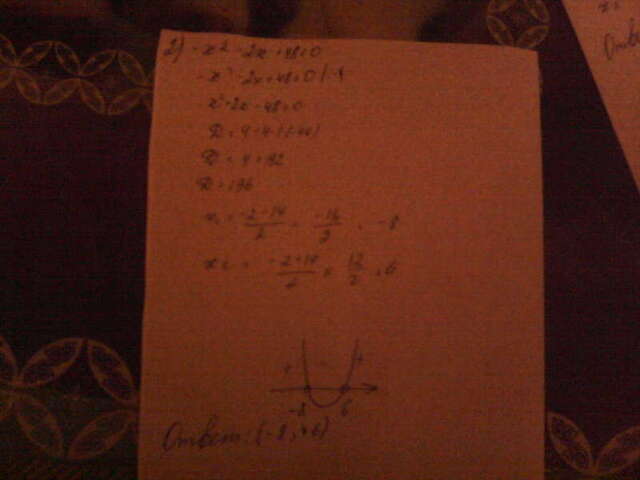 2) -x² - 2x + 48 > 0
-x² - 2x + 48 = 0 | -1
x² + 2x - 48 = 0
D = 4 - 4·(-48)
D = 4 + 192
D = 196
x₁ = -2-14/2 = -16/2 = -8
x₂ = -2+14/2 = 12/2 = 6
+ - +
-8 6
Ответ: (-8; +6)